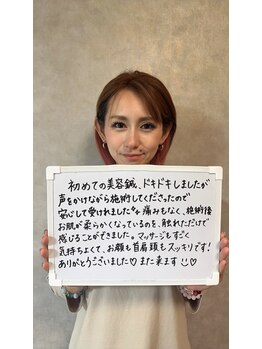 初めての美容鍼、ドキドキしましたが
声をかけながら施術してくださったので
安心して受けれました✨痛みもなく、施術後
お肌が柔らかくなっているのを、触れただけで
感じることができました。マッサージもすごく
気持ちよくて、お顔も首肩頭もスッキリです!
ありがとうございました♡また来ます☺♡